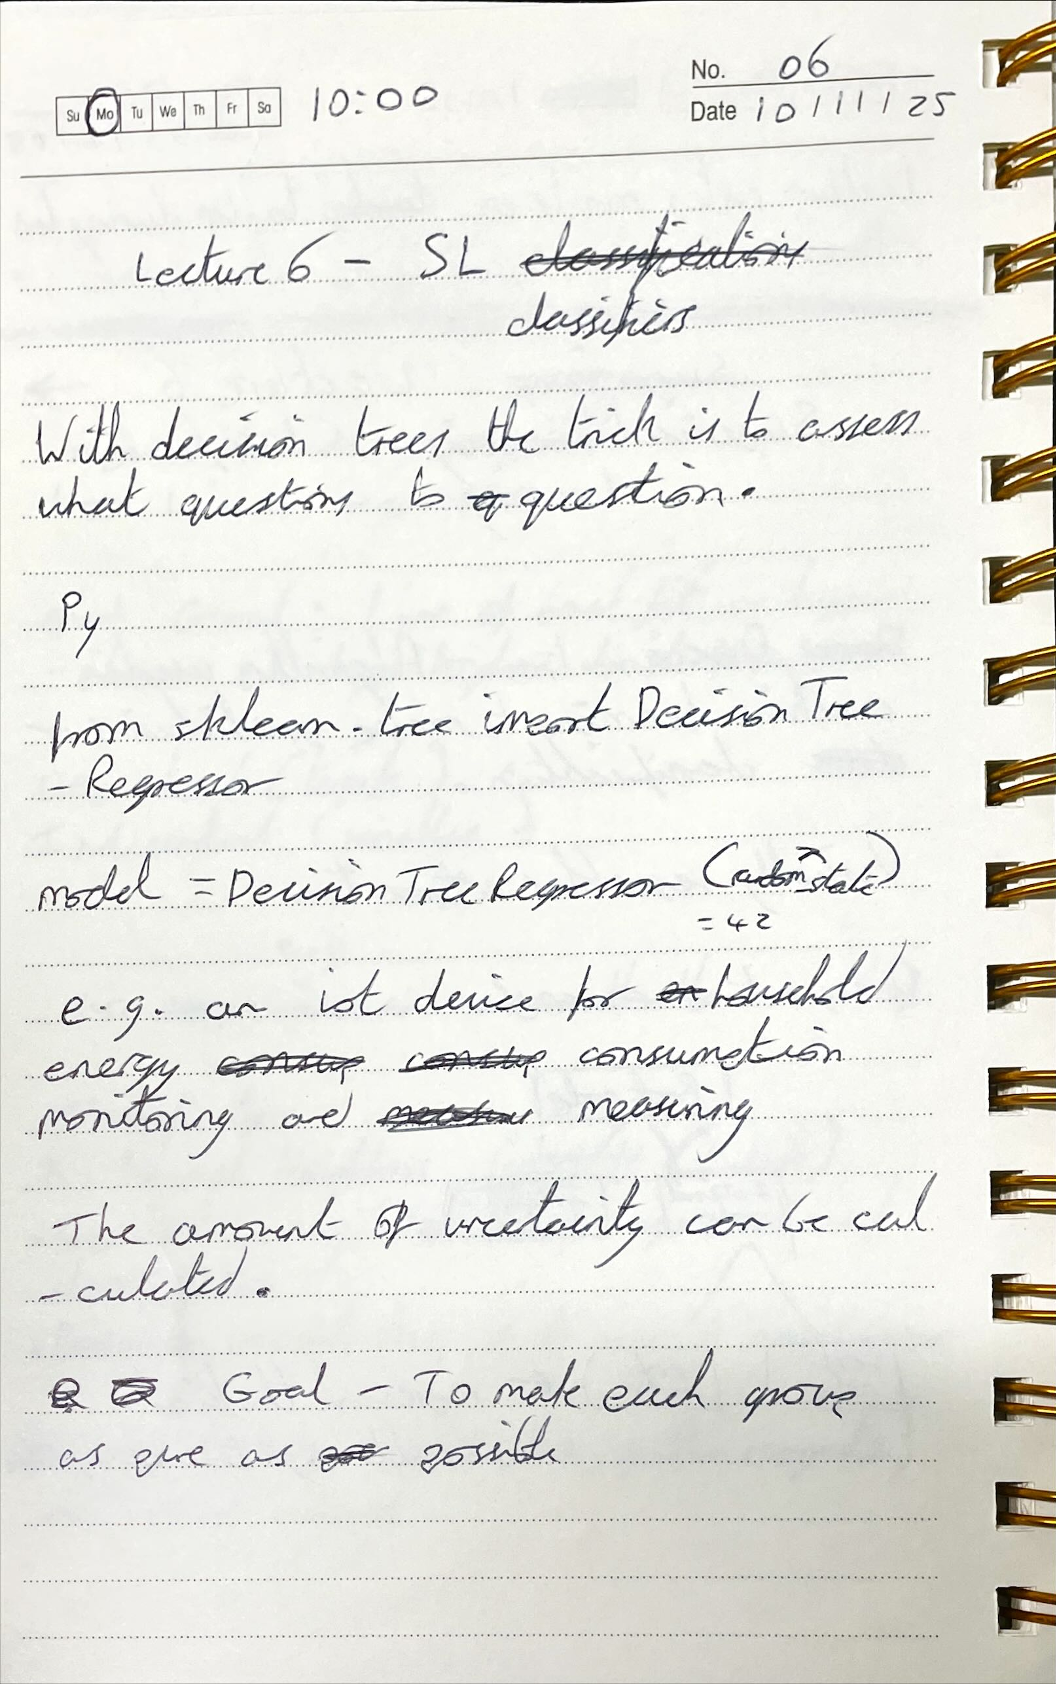 Su Mo Tu We Th Fr Sa 10:00
No. 06
Date 10/11/25
Lecture 6 - SL classification
classifiers
With decision trees the trick is to assess
what questions to q question.
Py
from sklearn.tree import DecisionTree
- Regressor
model = DecisionTreeRegressor (random state)
= 42
e.g. an iot device for en household
energy consup consup consumption
monitoring and measuring
The amount of uncertainty can be cal
- culated.
Goal - To make each group
as pure as possible